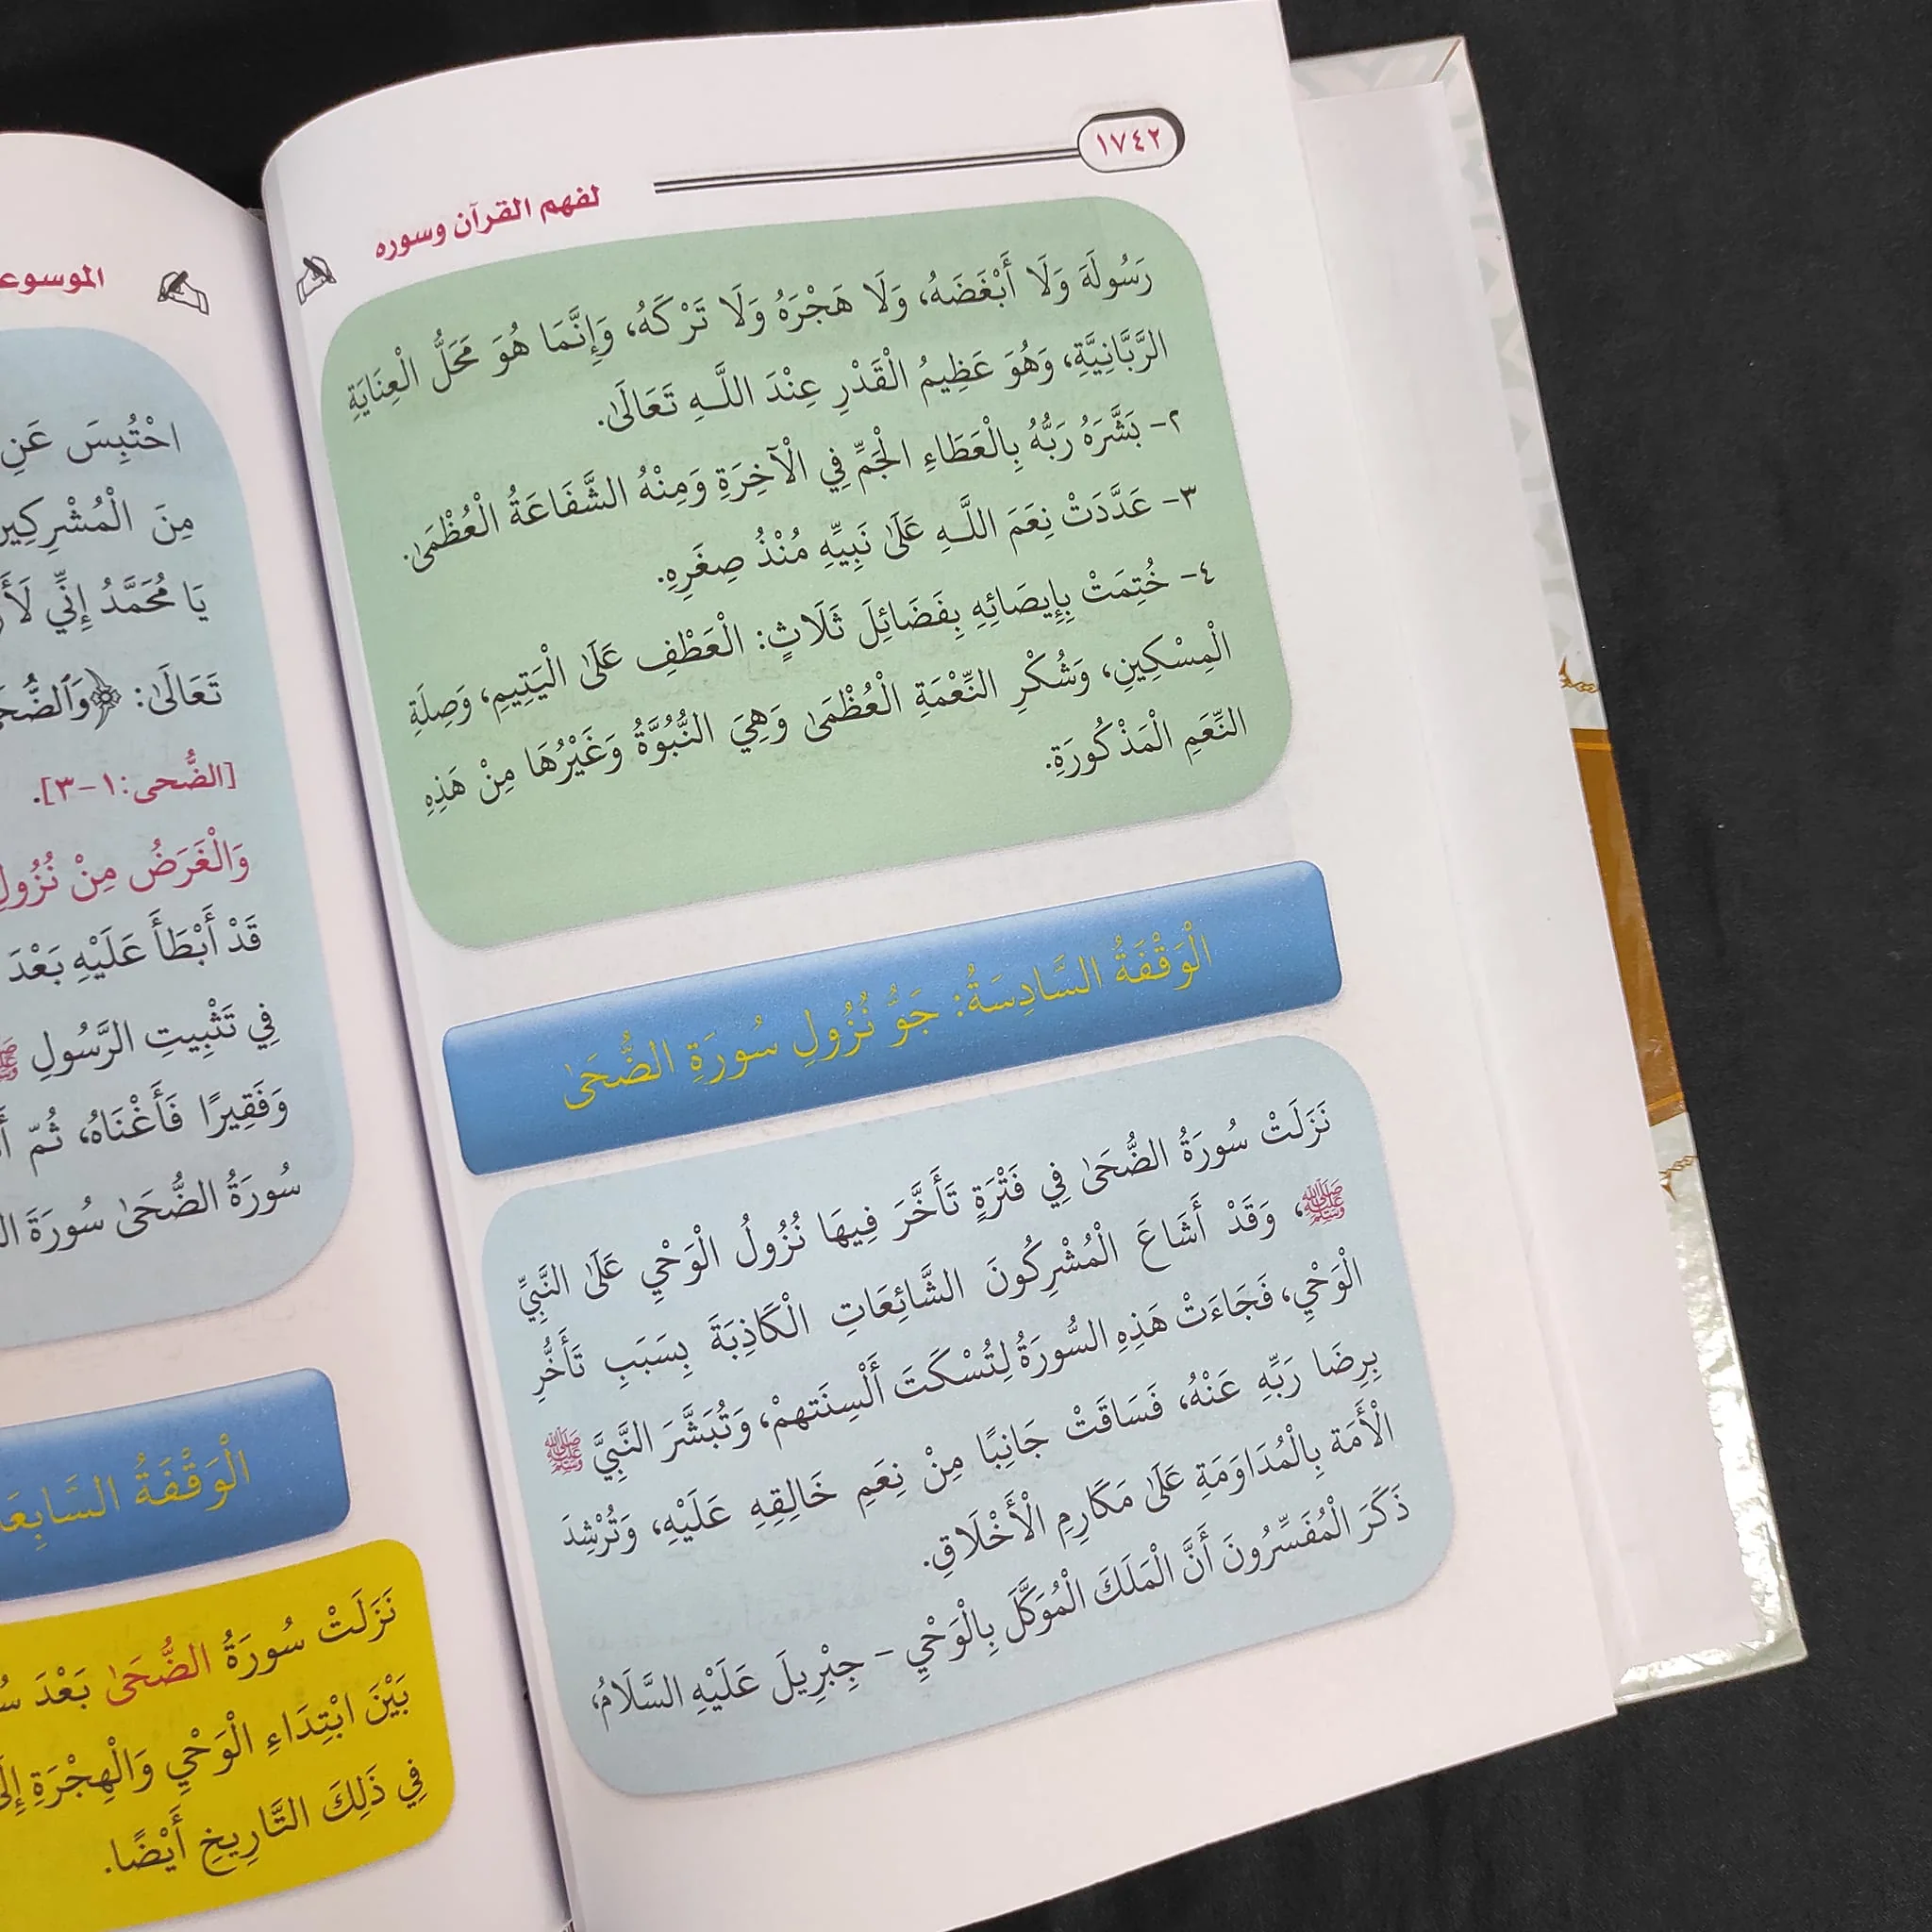 ١٧٤٢
لفهم القرآن وسوره
رَسُولَهَ وَلَا أَبْغَضَهُ، وَلَا هَجْرَهُ وَلَا تَرْكَهُ، وَإِنَّمَا هُوَ مَحَلُّ الْعِنَايَةِ
الرَّبَّانِيَّةِ، وَهُوَ عَظِيمُ الْقَدْرِ عِنْدَ اللَّهِ تَعَالَىٰ.
٢- بَشَّرَهُ رَبُّهُ بِالْعَطَاءِ الْجَمِّ فِي الْآخِرَةِ وَمِنْهُ الشَّفَاعَةُ الْعُظْمَىٰ.
٣- عَدَّدَتْ نِعَمَ اللَّهِ عَلَىٰ نَبِيِّهِ مُنْذُ صِغَرِهِ.
٤- خُتِمَتْ بِإِيصَائِهِ بِفَضَائِلَ ثَلَاثٍ: الْعَطْفِ عَلَىٰ الْيَتِيمِ، وَصِلَةِ
الْمِسْكِينِ، وَشُكْرِ النِّعْمَةِ الْعُظْمَىٰ وَهِيَ النُّبُوَّةُ وَغَيْرُهَا مِنْ هَذِهِ
النِّعَمِ الْمَذْكُورَةِ.
الْوَقْفَةُ السَّادِسَةُ: جَوُّ نُزُولِ سُورَةِ الضُّحَىٰ
نَزَلَتْ سُورَةُ الضُّحَىٰ فِي فَتْرَةٍ تَأَخَّرَ فِيهَا نُزُولُ الْوَحْيِ عَلَىٰ النَّبِيِّ
ﷺ، وَقَدْ أَشَاعَ الْمُشْرِكُونَ الشَّائِعَاتِ الْكَاذِبَةَ بِسَبَبِ تَأَخُّرِ
الْوَحْيِ، فَجَاءَتْ هَذِهِ السُّورَةُ لِتُسْكَتَ أَلْسِنَتهِمْ، وَتُبَشَّرَ النَّبِيَّ ﷺ
بِرِضَا رَبِّهِ عَنْهُ، فَسَاقَتْ جَانِبًا مِنْ نِعَمِ خَالِقِهِ عَلَيْهِ، وَتُرْشِدَ
الْأَمَة بِالْمُدَاوَمَةِ عَلَىٰ مَكَارِمِ الْأَخْلَاقِ.
ذَكَرَ الْمُفَسِّرُونَ أَنَّ الْمَلَكَ الْمُوَكَّلَ بِالْوَحْيِ - جِبْرِيلَ عَلَيْهِ السَّلَامُ،
احْتُبِسَ عَنِ
مِنَ الْمُشْرِكِينَ
يَا مُحَمَّدُ إِنِّي
تَعَالَىٰ: ﴿وَالضُّحَ
[الضُّحى: ١-٣].
وَالْغَرَضُ مِنْ نُزُولِ
قَدْ أَبْطَأَ عَلَيْهِ بَعْدَ
فِي تَثْبِيتِ الرَّسُولِ ﷺ
وَفَقِيرًا فَأَغْنَاهُ، ثُمّ
سُورَةُ الضُّحَىٰ سُورَةَ
الْوَقْفَةُ السَّابِعَة
نَزَلَتْ سُورَةُ الضُّحَىٰ بَعْدَ
بَيْنَ ابْتِدَاءِ الْوَحْيِ وَالْهِجْرَةِ
فِي ذَلِكَ التَّارِيخِ أَيْضًا.